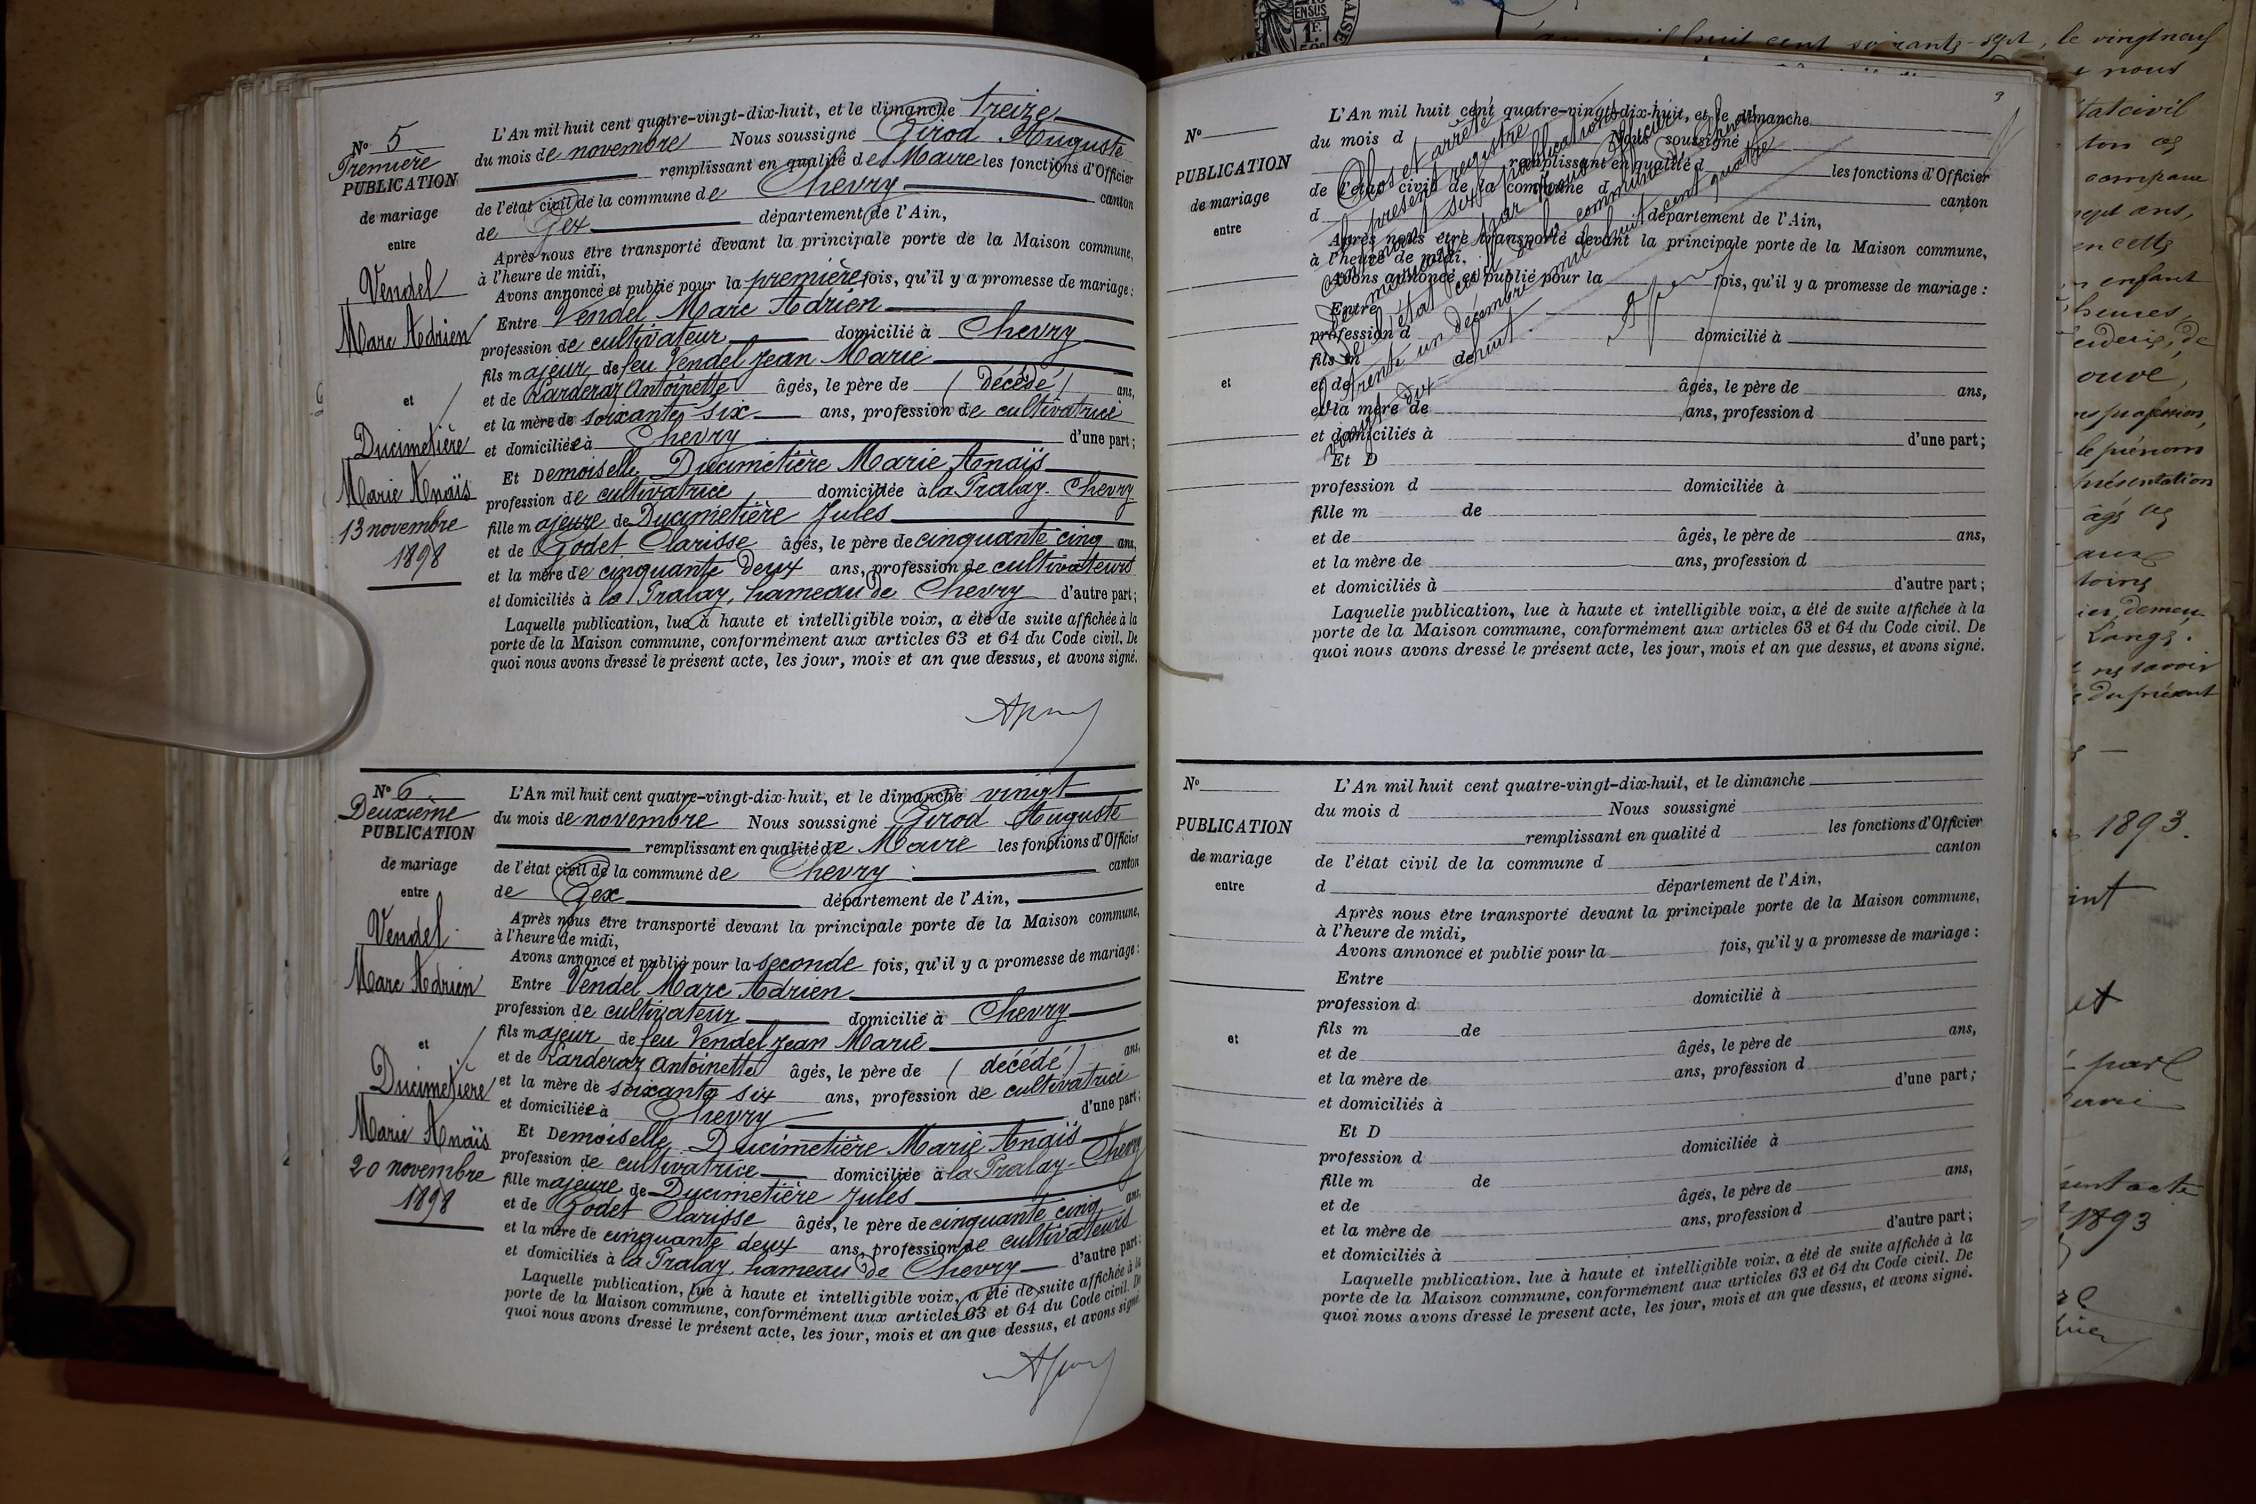 N° 5
Première
PUBLICATION
de mariage
entre
Vendel
Marc Adrien
et
Ducimetière
Marie Anaïs
13 novembre
1898
L'An mil huit cent quatre-vingt-dix-huit, et le dimanche treize
du mois de novembre Nous soussigné Girod Auguste
remplissant en qualité de Maire les fonctions d'Officier
de l'état civil de la commune de Chevry canton
de Gex département de l'Ain,
Après nous être transporté devant la principale porte de la Maison commune,
à l'heure de midi,
Avons annoncé et publié pour la première fois, qu'il y a promesse de mariage :
Entre Vendel Marc Adrien
profession de cultivateur domicilié à Chevry
fils majeur de feu Vendel Jean Marie
et de Larderaz Antoinette âgés, le père de (décédé) ans,
et la mère de soixante six ans, profession de cultivatrice
et domiciliée à Chevry d'une part ;
Et Demoiselle Ducimetière Marie Anaïs
profession de cultivatrice domiciliée à la Pralay - Chevry
fille majeure de Ducimetière Jules
et de Godet Clarisse âgés, le père de cinquante cinq ans,
et la mère de cinquante deux ans, profession de cultivateurs
et domiciliés à la Pralay, hameau de Chevry d'autre part ;
Laquelle publication, lue à haute et intelligible voix, a été de suite affichée à la
porte de la Maison commune, conformément aux articles 63 et 64 du Code civil. De
quoi nous avons dressé le présent acte, les jour, mois et an que dessus, et avons signé.
N° 6
Deuxième
PUBLICATION
de mariage
entre
Vendel
Marc Adrien
et
Ducimetière
Marie Anaïs
20 novembre
1898
L'An mil huit cent quatre-vingt-dix-huit, et le dimanche vingt
du mois de novembre Nous soussigné Girod Auguste
remplissant en qualité de Maire les fonctions d'Officier
de l'état civil de la commune de Chevry canton
de Gex département de l'Ain,
Après nous être transporté devant la principale porte de la Maison commune,
à l'heure de midi,
Avons annoncé et publié pour la seconde fois, qu'il y a promesse de mariage :
Entre Vendel Marc Adrien
profession de cultivateur domicilié à Chevry
fils majeur de feu Vendel Jean Marie
et de Larderaz Antoinette âgés, le père de (décédé) ans,
et la mère de soixante six ans, profession de cultivatrice
et domiciliée à Chevry d'une part ;
Et Demoiselle Ducimetière Marie Anaïs
profession de cultivatrice domiciliée à la Pralay - Chevry
fille majeure de Ducimetière Jules
et de Godet Clarisse âgés, le père de cinquante cinq ans,
et la mère de cinquante deux ans, profession de cultivateurs
et domiciliés à la Pralay, hameau de Chevry d'autre part ;
Laquelle publication, lue à haute et intelligible voix, a été de suite affichée à la
porte de la Maison commune, conformément aux articles 63 et 64 du Code civil. De
quoi nous avons dressé le présent acte, les jour, mois et an que dessus, et avons signé.
3
N°
PUBLICATION
de mariage
entre
et
L'An mil huit cent quatre-vingt-dix-huit, et le dimanche
du mois d Nous soussigné
remplissant en qualité d les fonctions d'Officier
de l'état civil de la commune d canton
d département de l'Ain,
Après nous être transporté devant la principale porte de la Maison commune,
à l'heure de midi,
Avons annoncé et publié pour la fois, qu'il y a promesse de mariage :
Entre
profession d domicilié à
fils m de
et de âgés, le père de ans,
et la mère de ans, profession d
et domiciliés à d'une part ;
Et D
profession d domiciliée à
fille m de
et de âgés, le père de ans,
et la mère de ans, profession d
et domiciliés à d'autre part ;
Laquelle publication, lue à haute et intelligible voix, a été de suite affichée à la
porte de la Maison commune, conformément aux articles 63 et 64 du Code civil. De
quoi nous avons dressé le présent acte, les jour, mois et an que dessus, et avons signé.
Clos et arrêté
le présent registre
contenant six publications
de mariage par nous officier
de l'état civil de la commune de Chevry
le trente un décembre mil huit cent quatre
vingt dix-huit.
N°
PUBLICATION
de mariage
entre
et
L'An mil huit cent quatre-vingt-dix-huit, et le dimanche
du mois d Nous soussigné
remplissant en qualité d les fonctions d'Officier
de l'état civil de la commune d canton
d département de l'Ain,
Après nous être transporté devant la principale porte de la Maison commune,
à l'heure de midi,
Avons annoncé et publié pour la fois, qu'il y a promesse de mariage :
Entre
profession d domicilié à
fils m de
et de âgés, le père de ans,
et la mère de ans, profession d
et domiciliés à d'une part ;
Et D
profession d domiciliée à
fille m de
et de âgés, le père de ans,
et la mère de ans, profession d
et domiciliés à d'autre part ;
Laquelle publication, lue à haute et intelligible voix, a été de suite affichée à la
porte de la Maison commune, conformément aux articles 63 et 64 du Code civil. De
quoi nous avons dressé le présent acte, les jour, mois et an que dessus, et avons signé.
mil huit cent soixante-sept, le vingt neuf
nous
ans,
enfant
heures,
profession,
le prénom
présentation
savoir
du présent
1893.
et
acte
1893